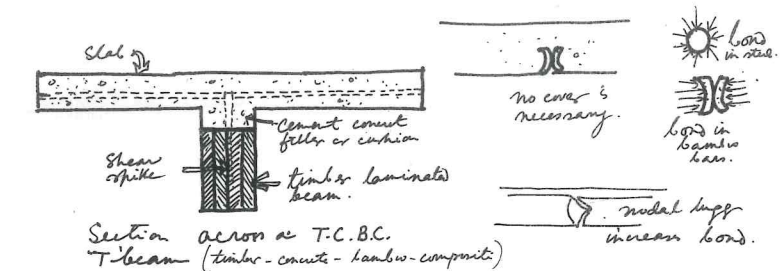 Slab
cement concret
filler or cushion
Shear
spike
timber laminated
beam.
Section across a T.C.B.C.
T'beam (timber-concrete-bambu-composite)
no cover is
necessary.
bond
in steel.
bond in
bambu
bars.
nodal lugg
increases bond.